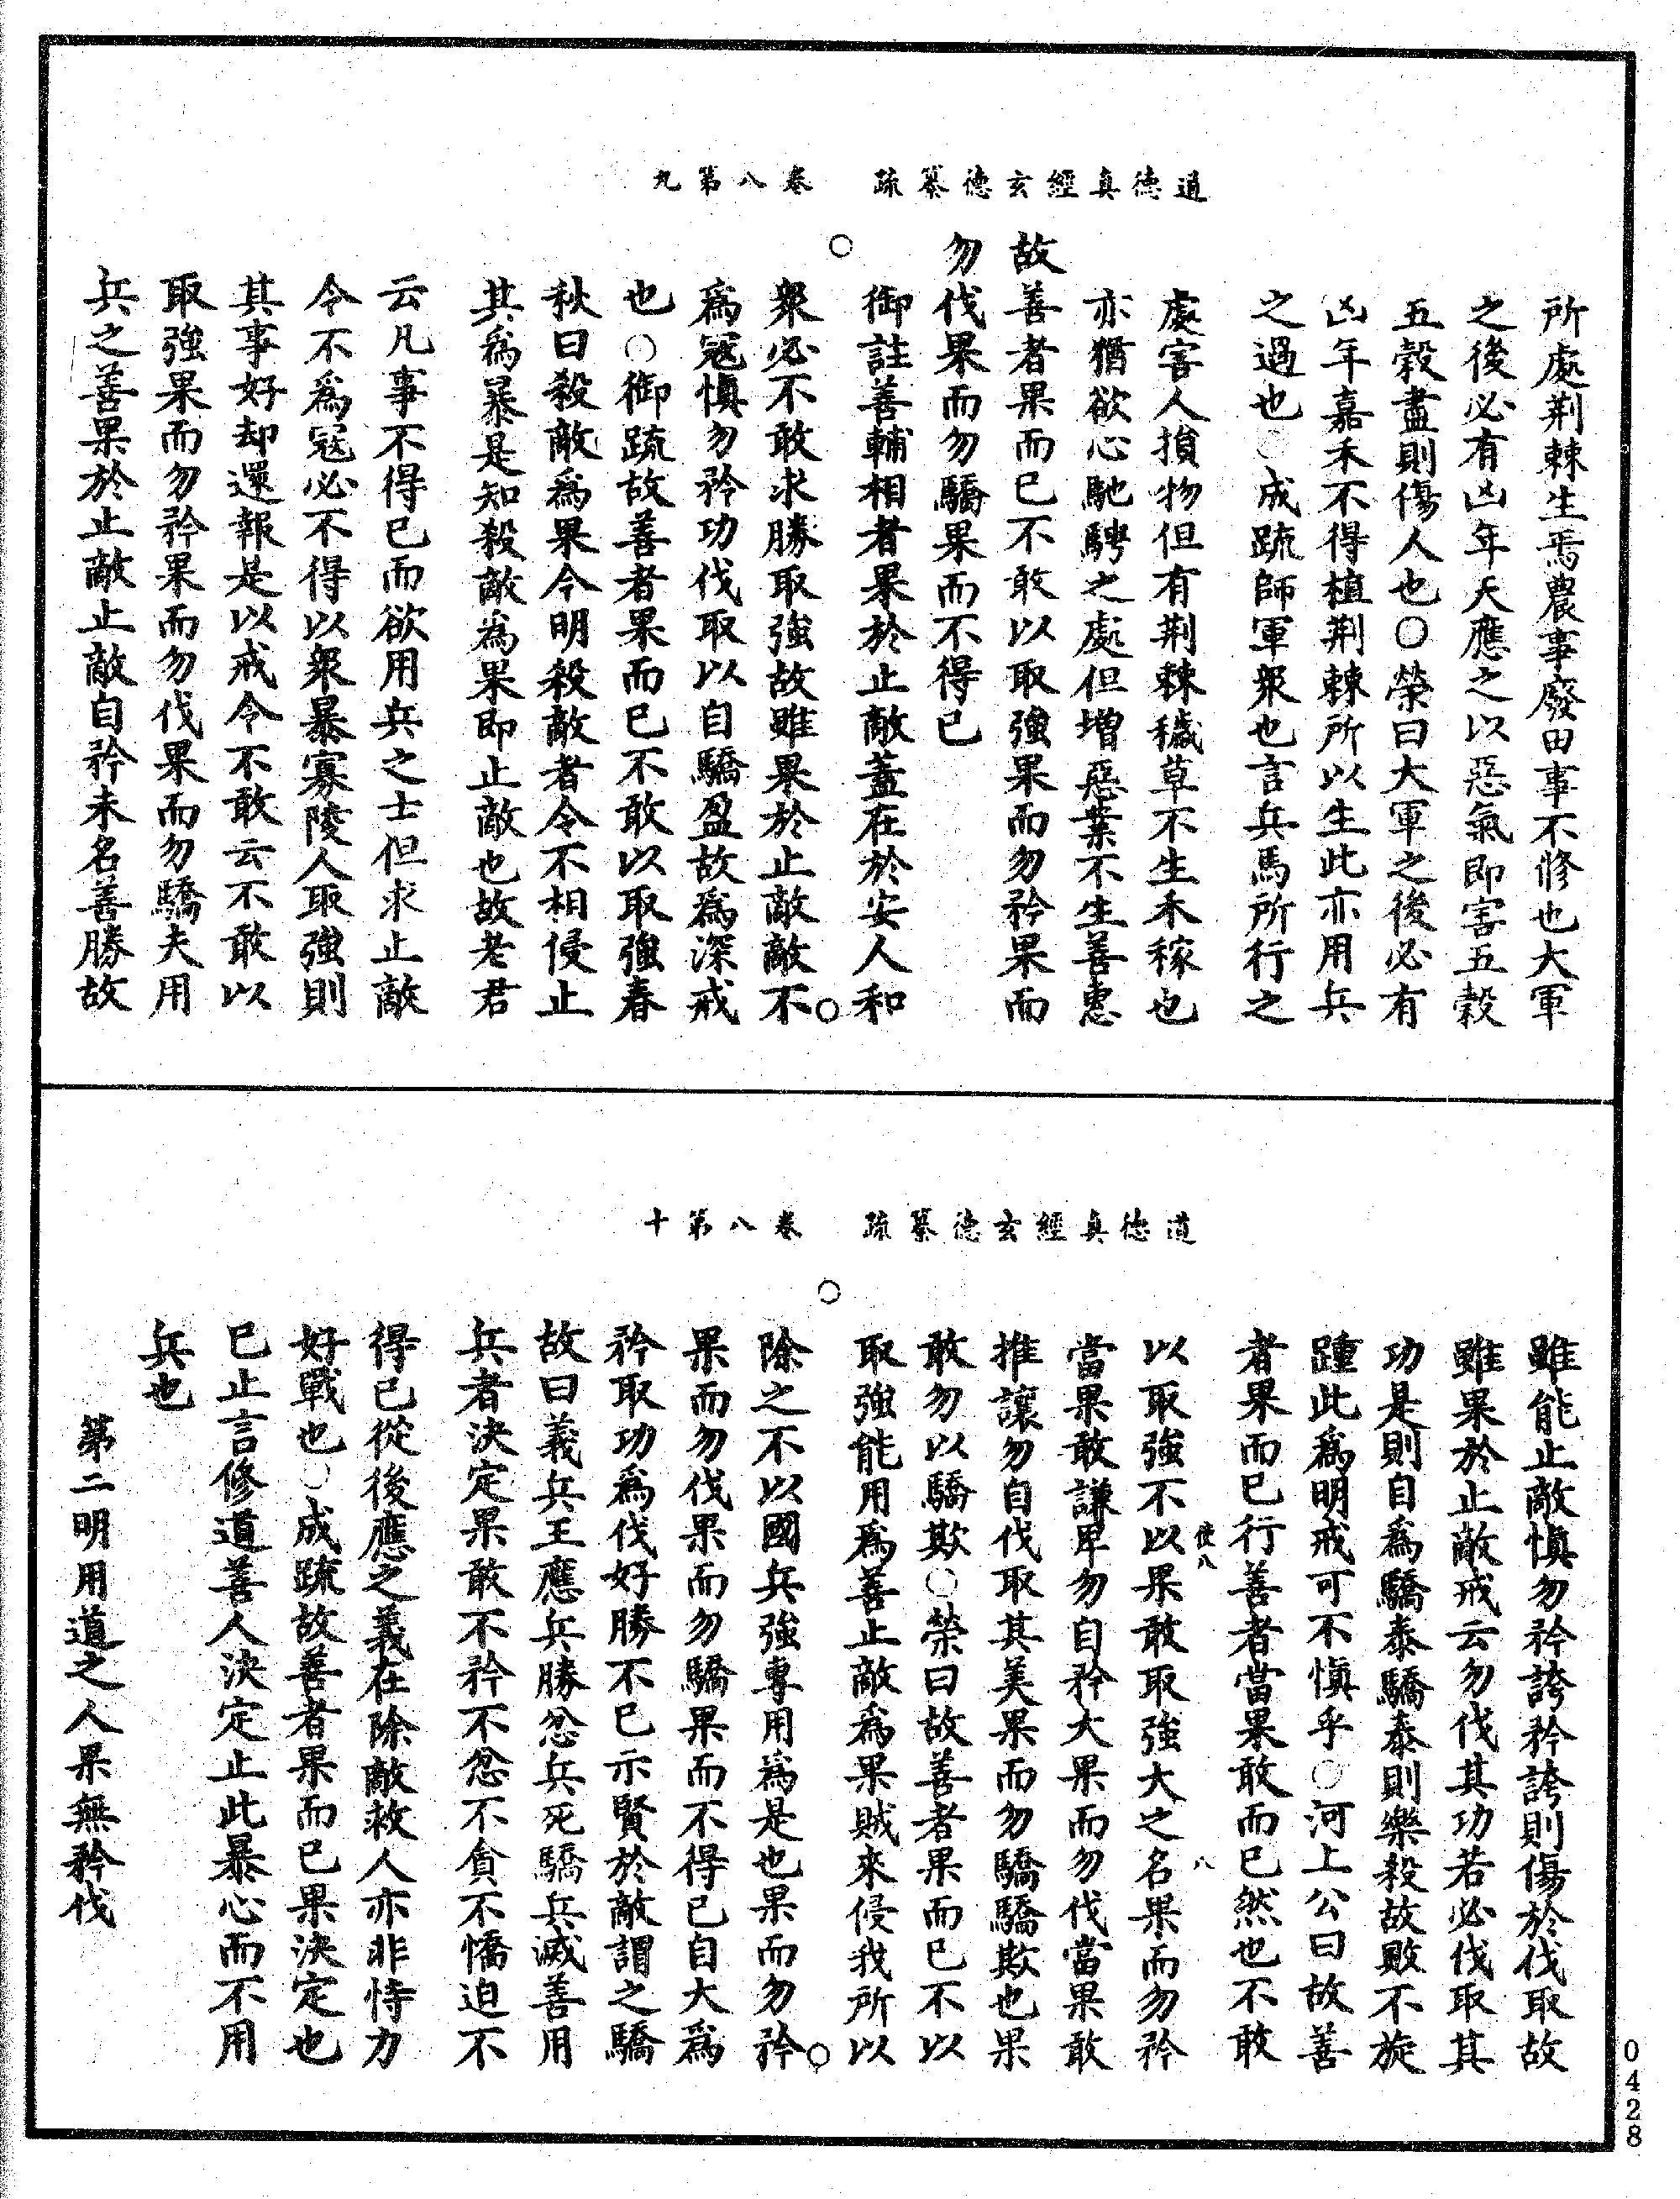 道德真經玄德纂疏　卷八第九
所處荆棘生焉農事廢田事不修也大軍
之後必有凶年天應之以惡氣即害五穀
五穀盡則傷人也○榮曰大軍之後必有
凶年嘉禾不得植荆棘所以生此亦用兵
之過也○成疏師軍衆也言兵馬所行之
處害人損物但有荆棘穢草不生禾稼也
亦猶欲心馳騁之處但增惡業不生善惠
故善者果而已不敢以取強果而勿矜果而
勿伐果而勿驕果而不得已
御註善輔相者果於止敵蓋在於安人和
衆必不敢求勝取強故雖果於止敵敵不
爲寇慎勿矜功伐取以自驕盈故爲深戒
也○御疏故善者果而已不敢以取強春
秋曰殺敵爲果今明殺敵者令不相侵止
其爲暴是知殺敵爲果即止敵也故老君
云凡事不得已而欲用兵之士但求止敵
令不爲寇必不得以衆暴寡陵人取強則
其事好却還報是以戒令不敢云不敢以
取強果而勿矜果而勿伐果而勿驕夫用
兵之善果於止敵止敵自矜未名善勝故
道德真經玄德纂疏　卷八第十
雖能止敵慎勿矜誇矜誇則傷於伐取故
雖果於止敵戒云勿伐其功若必伐取其
功是則自爲驕泰驕泰則樂殺故敗不旋
踵此爲明戒可不慎乎○河上公曰故善
者果而已行善者當果敢而已然也不敢
以取強不以果敢取強大之名果而勿矜
使八
八
當果敢謙卑勿自矜大果而勿伐當果敢
推讓勿自伐取其美果而勿驕驕欺也果
敢勿以驕欺○榮曰故善者果而已不以
取強能用爲善止敵爲果賊來侵我所以
除之不以國兵強專用爲是也果而勿矜
果而勿伐果而勿驕果而不得已自大爲
矜取功爲伐好勝不已示賢於敵謂之驕
故曰義兵王應兵勝忿兵死驕兵滅善用
兵者決定果敢不矜不忿不貪不憍迫不
得已從後應之義在除敵救人亦非恃力
好戰也○成疏故善者果而已果決定也
已止言修道善人決定止此暴心而不用
兵也
第二明用道之人果無矜伐
0428